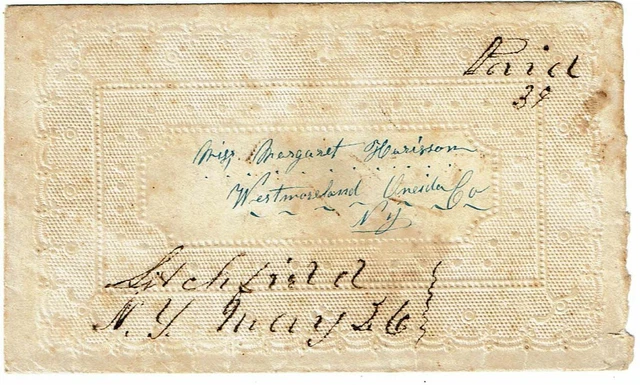 Paid
39
Miss. Margaret Harisson
Westmoreland Oneida Co
N Y
Litchfield
N. Y. May 26